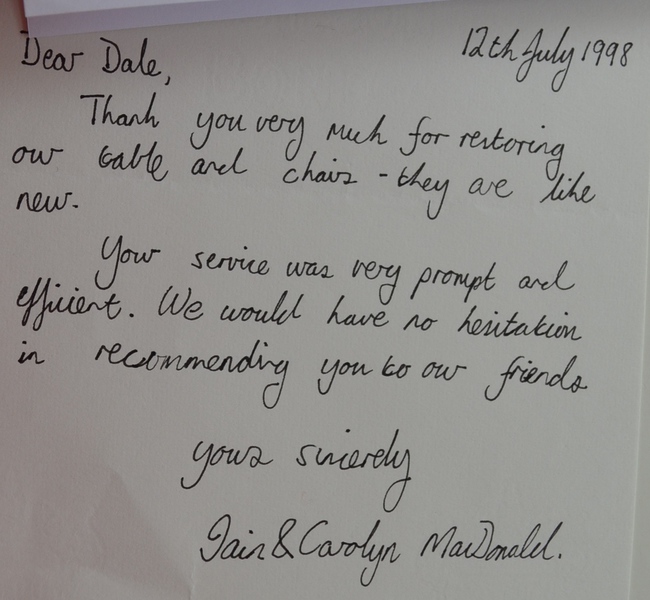 12th July 1998
Dear Dale,
Thank you very much for restoring
our table and chairs - they are like
new.
Your service was very prompt and
efficient. We would have no hesitation
in recommending you to our friends
yours sincerely
Iain & Carolyn MacDonald.